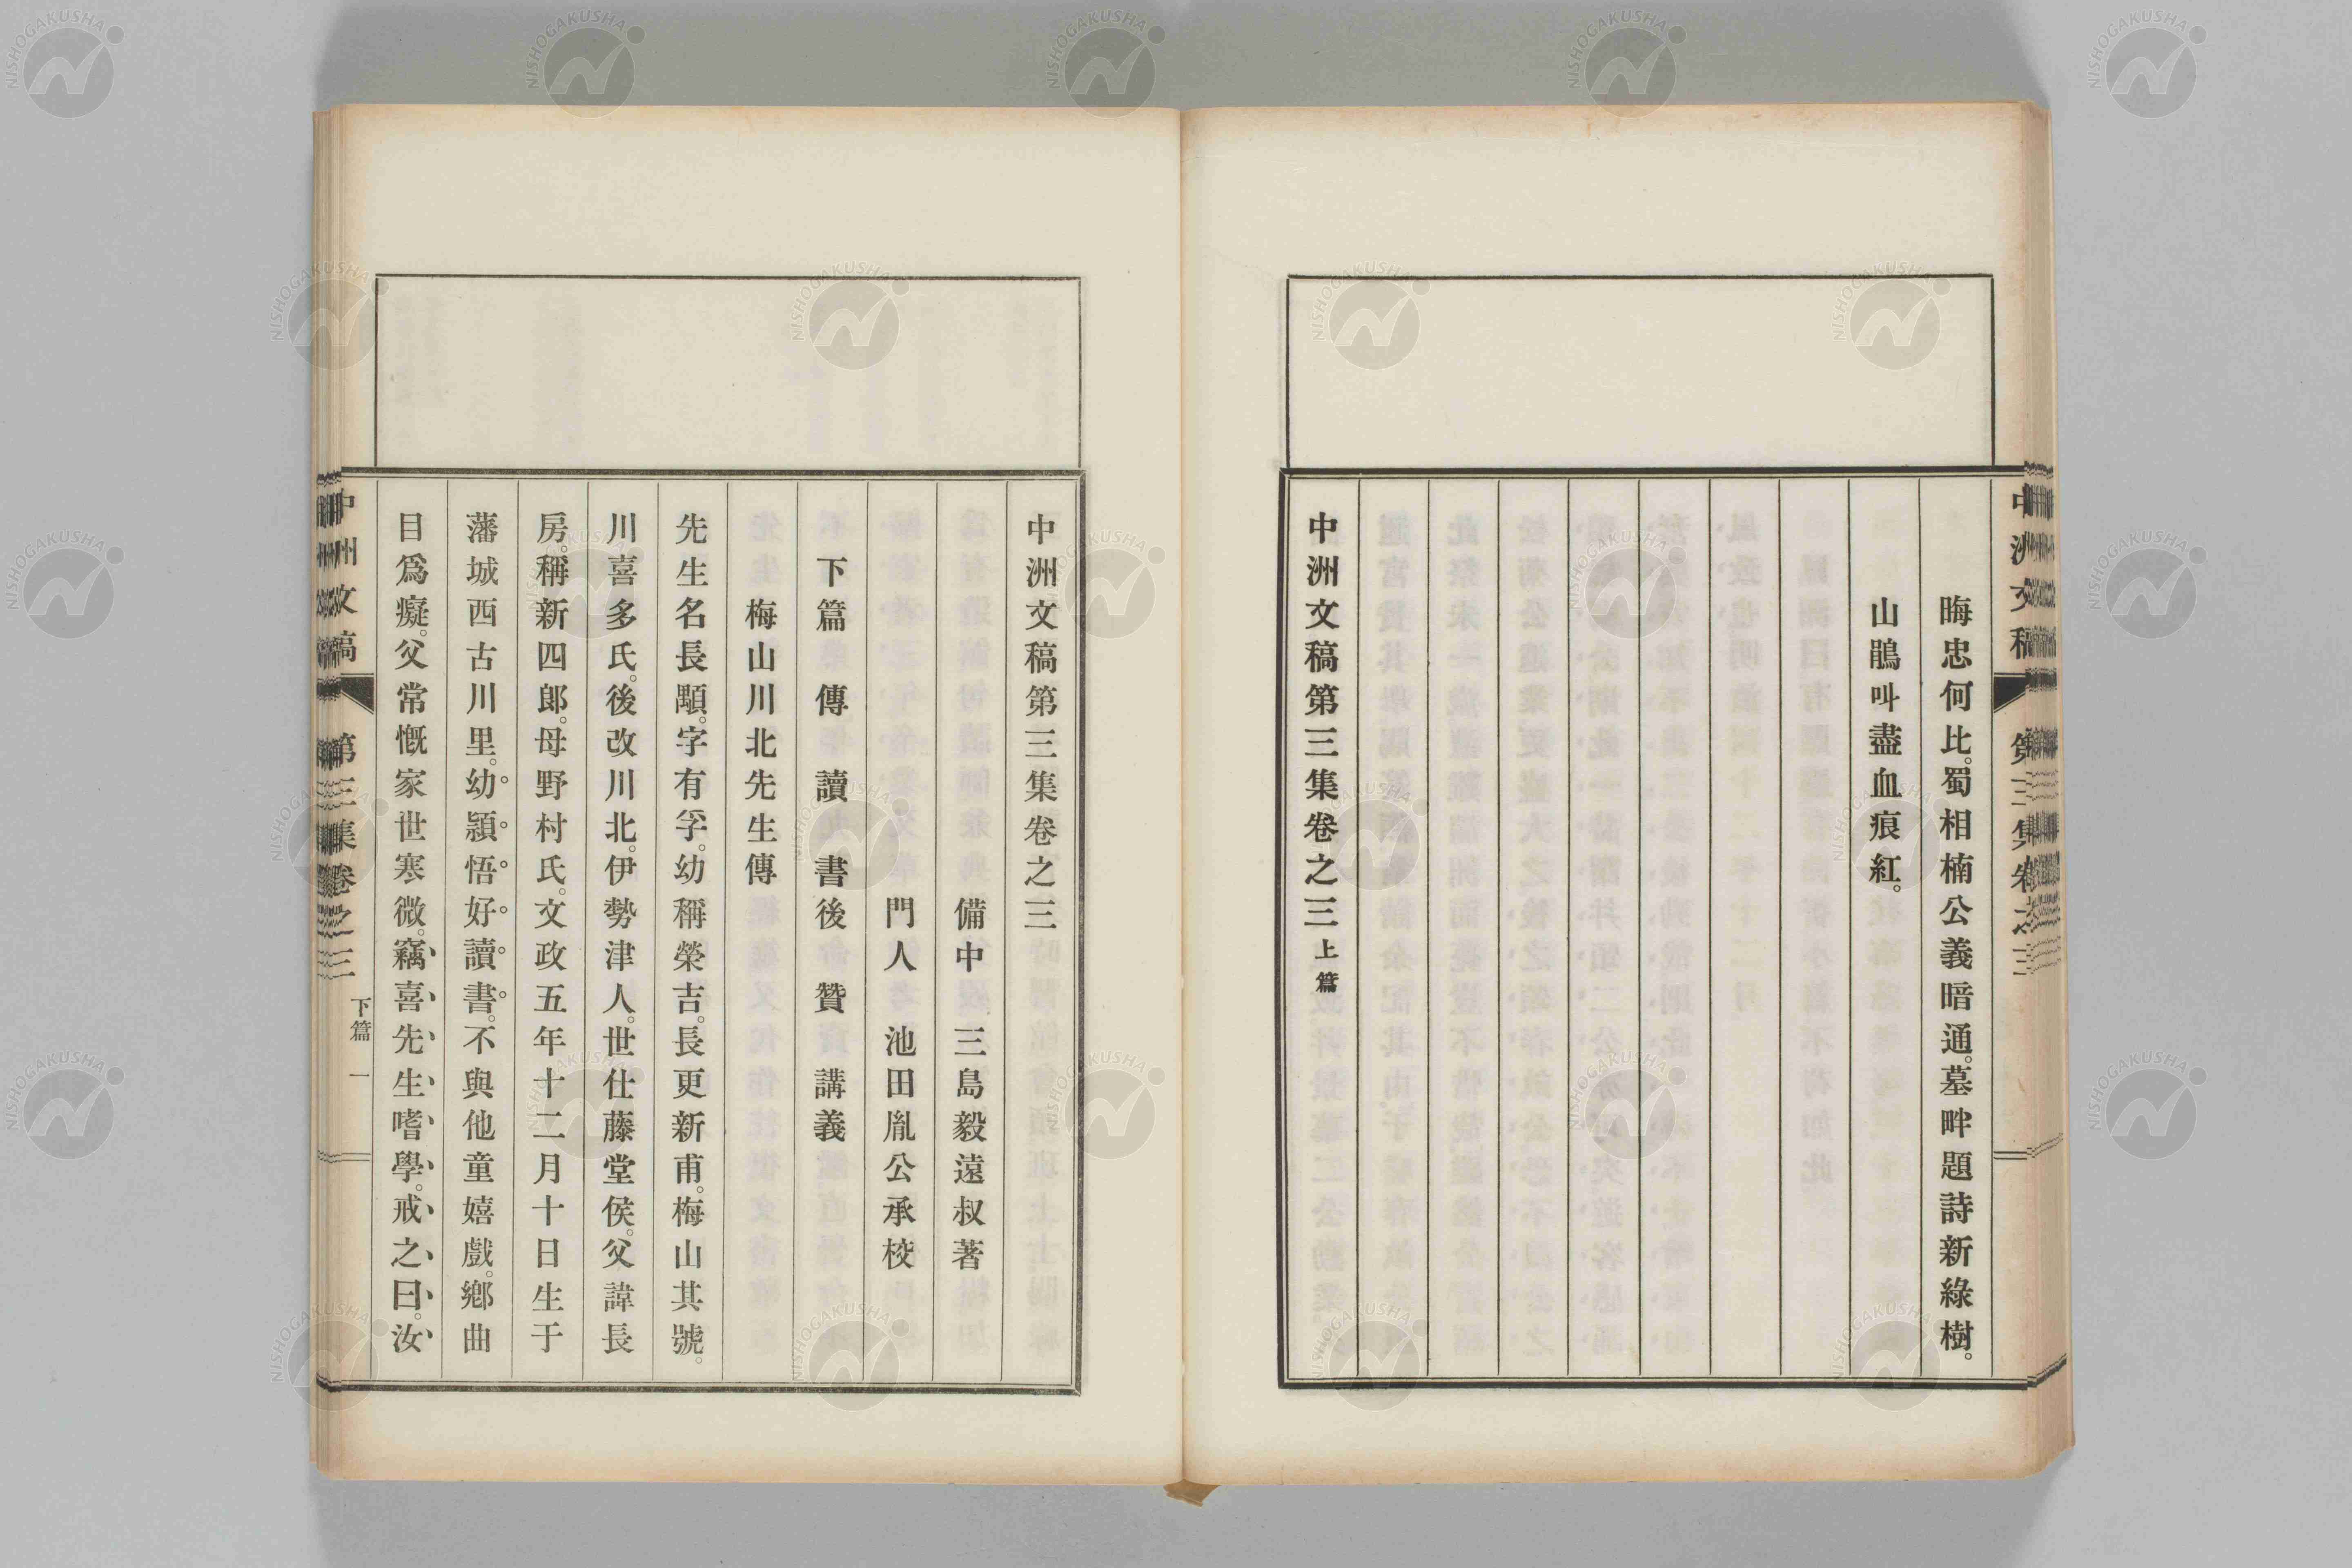 晦忠何比。蜀相楠公義暗通。墓畔題詩新綠樹。
山鵑叫盡血痕紅。
中洲文稿第三集卷之三上篇
中洲文稿第三集卷之三
備中 三島毅遠叔著
門人 池田胤公承校
下篇 傳 讀 書後 贊 講義
梅山川北先生傳
先生名長顒。字有孚。幼稱榮吉。長更新甫。梅山其號。
川喜多氏。後改川北。伊勢津人。世仕藤堂侯。父諱長
房。稱新四郎。母野村氏。文政五年十二月十日生于
藩城西古川里。幼穎悟好讀書。不與他童嬉戲。鄉曲
目爲癡。父常慨家世寒微。竊喜先生嗜學。戒之曰。汝
中洲文稿 第三集卷之三 下篇 一
NISHOGAKUSHA